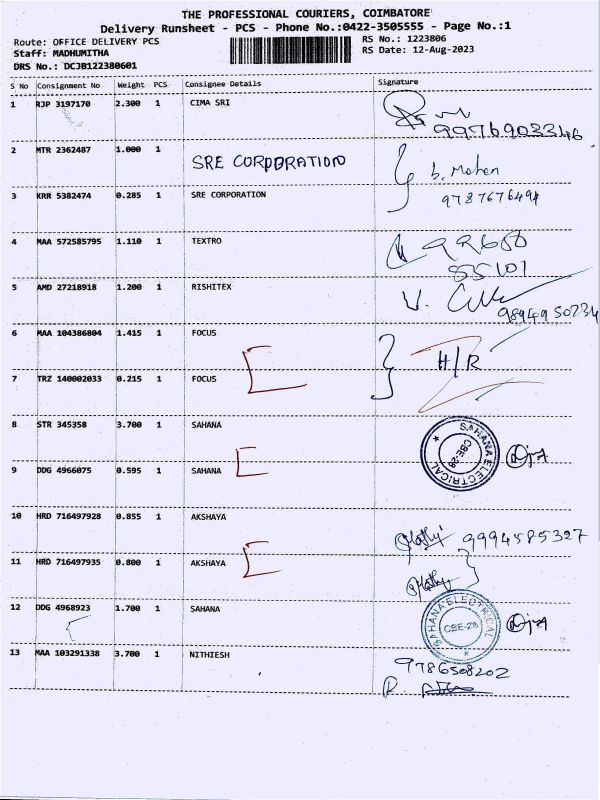 THE PROFESSIONAL COURIERS, COIMBATORE
Delivery Runsheet - PCS - Phone No.:0422-3505555 - Page No.:1
Route: OFFICE DELIVERY PCS
RS No.: 1223806
Staff: MADHUMITHA
RS Date: 12-Aug-2023
DRS No.: DCJB122380601
S No Consignment No Weight PCS Consignee Details Signature
1 RJP 3197170 2.300 1 CIMA SRI
9976903346
2 MTR 2362487 1.000 1 SRE CORPORATION b. Mohen
3 KRR 5382474 0.285 1 SRE CORPORATION 9787676494
4 MAA 572585795 1.110 1 TEXTRO 99650
55101
5 AMD 27218918 1.200 1 RISHITEX
9894950234
6 MAA 104386804 1.415 1 FOCUS H/R
7 TRZ 140002033 0.215 1 FOCUS
8 STR 345358 3.700 1 SAHANA SAHANA ELECTRICAL CBE-28
9 DDG 4966075 0.595 1 SAHANA
10 HRD 716497928 0.855 1 AKSHAYA Mathy 9994585327
11 HRD 716497935 0.800 1 AKSHAYA Mathy
12 DDG 4968923 1.700 1 SAHANA SAHANA ELECTRICAL CBE-28
13 MAA 103291338 3.700 1 NITHIESH 9786508202